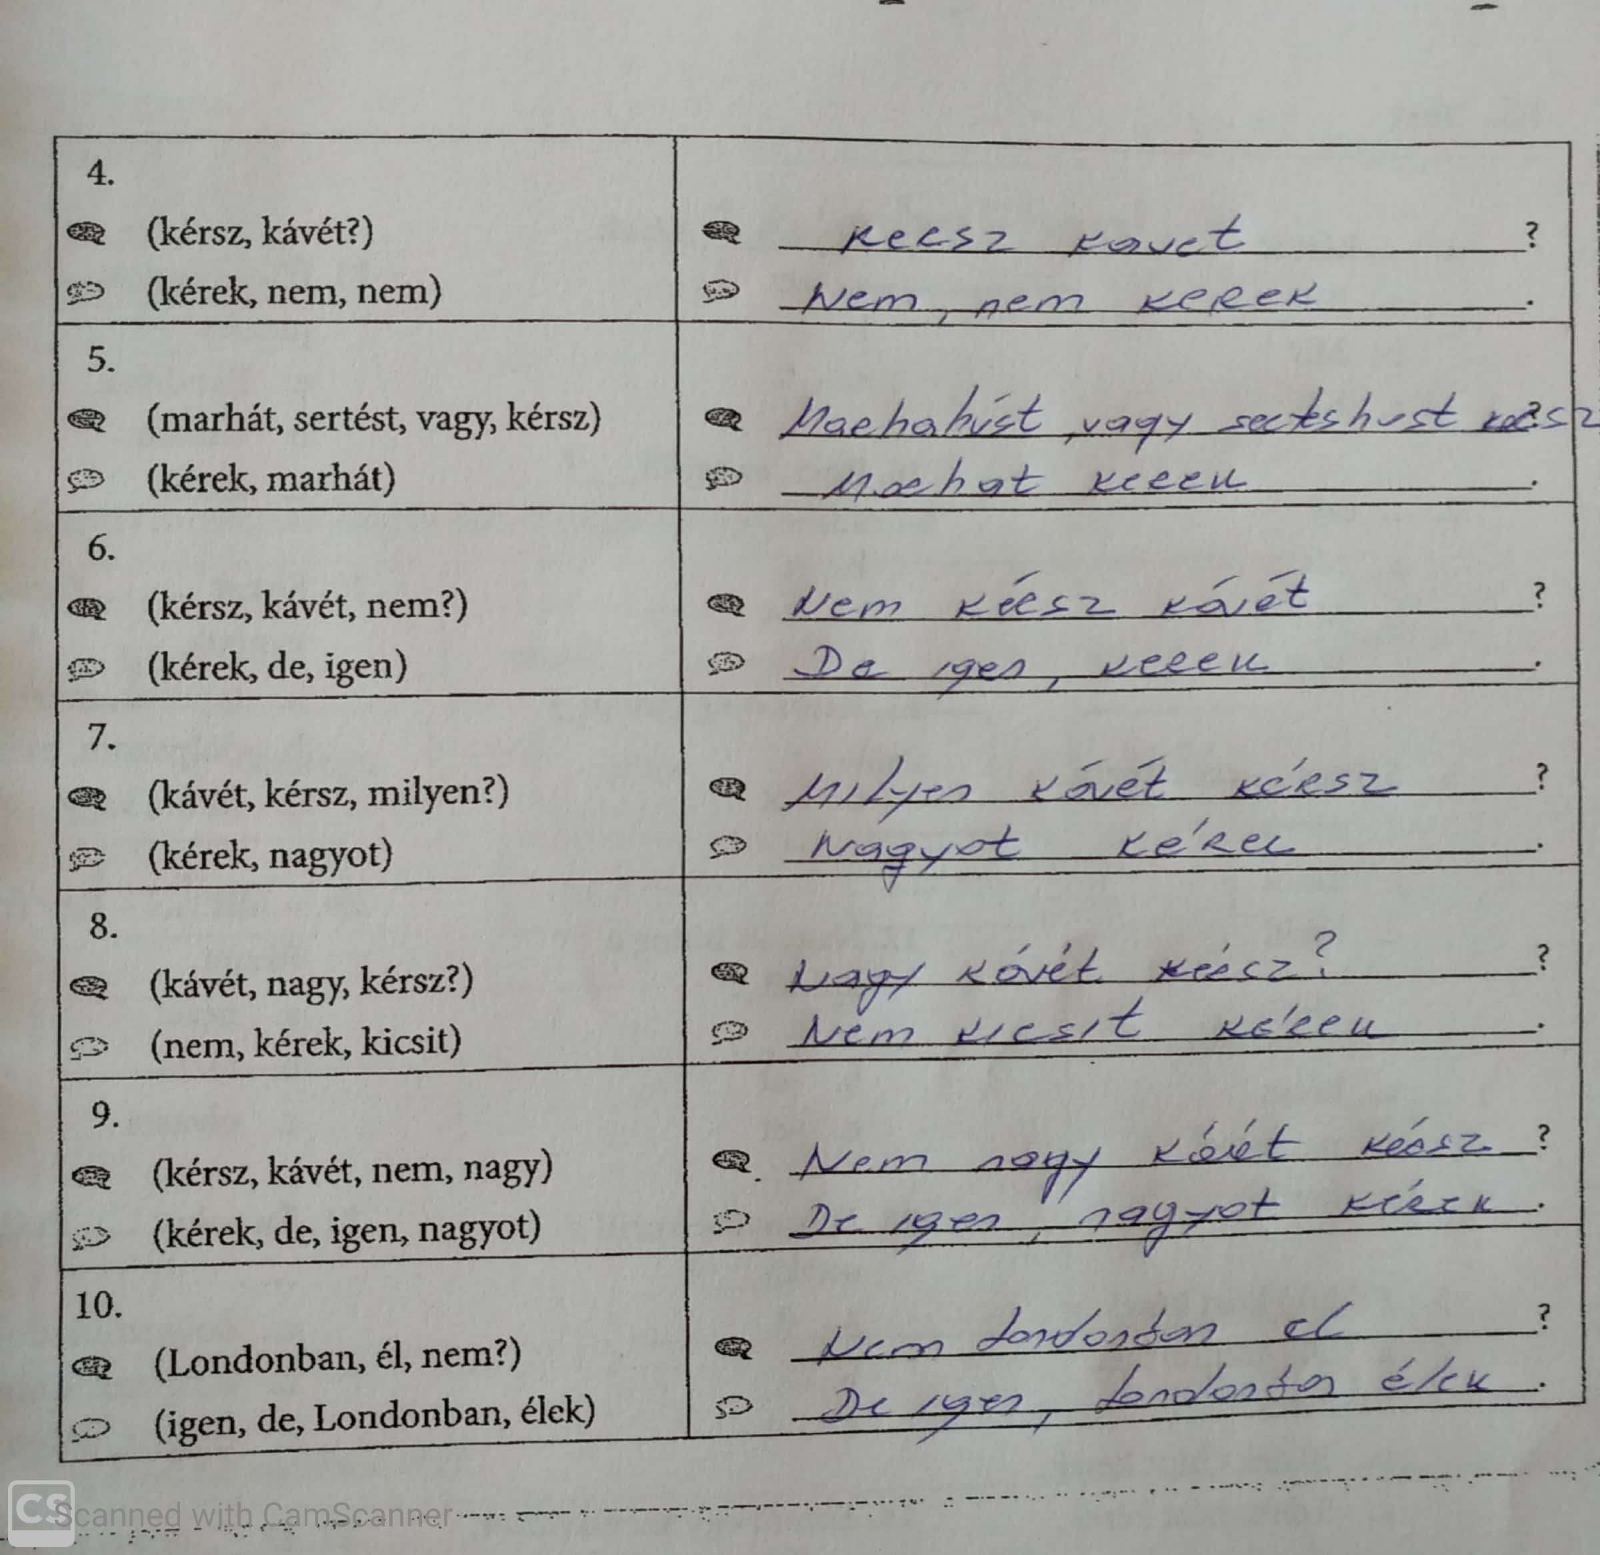 4.
(kérsz, kávét?)
Kérsz kavet ?
(kérek, nem, nem)
Nem, nem kerek .
5.
(marhát, sertést, vagy, kérsz)
Marhahúst, vagy serteshust kérsz ?
(kérek, marhát)
Marhat kerek .
6.
(kérsz, kávét, nem?)
Nem kérsz kávét ?
(kérek, de, igen)
De igen, kerek .
7.
(kávét, kérsz, milyen?)
Milyen kávét kérsz ?
(kérek, nagyot)
Nagyot kérek .
8.
(kávét, nagy, kérsz?)
Nagy kávét kérsz? ?
(nem, kérek, kicsit)
Nem kicsit kérek .
9.
(kérsz, kávét, nem, nagy)
Nem nagy kávét kérsz ?
(kérek, de, igen, nagyot)
De igen, nagyot kérek .
10.
(Londonban, él, nem?)
Nem Londonban el ?
(igen, de, Londonban, élek)
De igen, Londonban élek .
CS Scanned with CamScanner